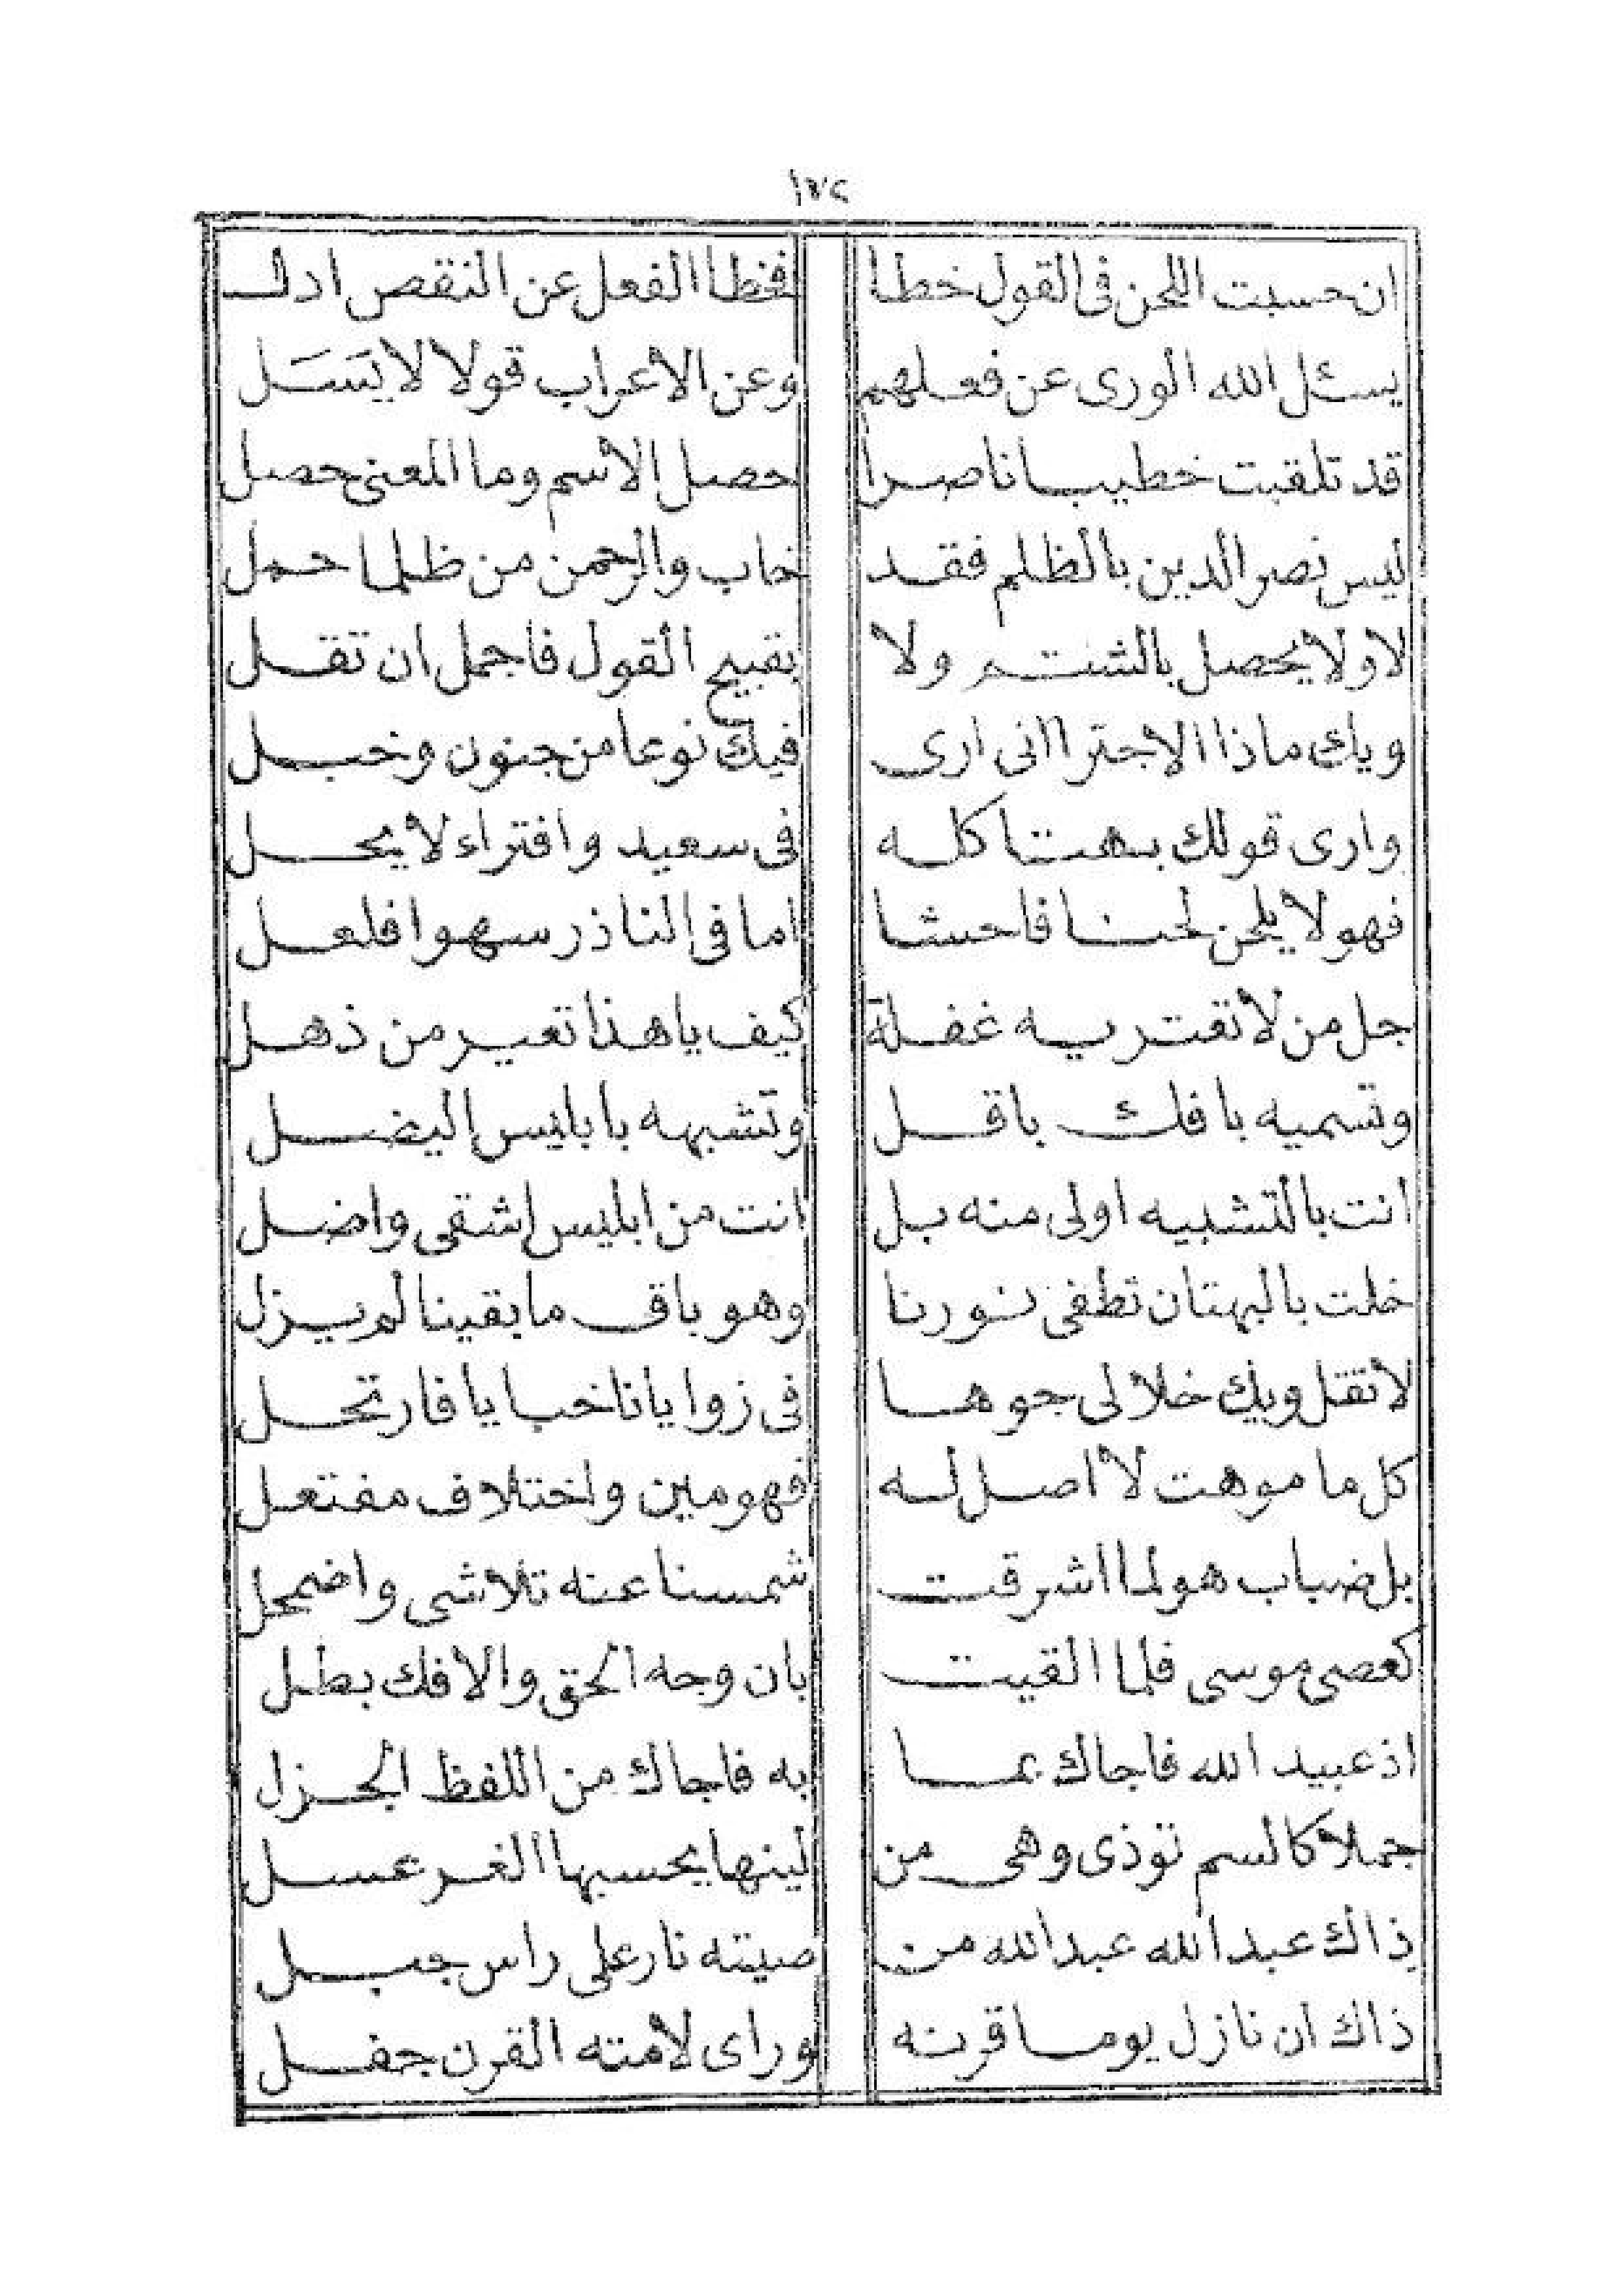 ١٧٢
ان حسبت اللحن فى القول خطا فخطا الفعل عن النقص ادل
يسئل الله الورى عن فعلهم وعن الاعراب قولا لا يَسَل
قد تلقبت خطيبا ناصرا حصل الاسم وما المعنى حصل
ليس نصر الدين بالظلم فقد خاب والرحمن من ظلما حمل
لا ولا يحصل بالشتم ولا بقبيح القول فاجمل ان تقل
ويك ماذا الاجترا انى ارى فيك نوعا من جنون وخبل
وارى قولك بهتا كله فى سعيد وافتراء لا يحل
فهو لا يلحن لحنا فاحشا اما فى النادر سهوا فلعل
جل من لا تعتريه غفلة كيف يا هذا تعير من ذهل
وتسميه بافك باقل وتشبهه بابليس اليضل
انت بالتشبيه اولى منه بل انت من ابليس اشقى واضل
خلت بالبهتان تطفى نورنا وهو باق ما بقينا لم يزل
لا تقل ويك خلا لى جوها فى زوايانا خبايا فارتحل
كل ما موهت لا اصل له فهو مين واختلاف مفتعل
بل ضباب هو لما اشرقت شمسنا عنه تلاشى واضمحل
كعصى موسى فلما القيت بان وجه الحق والافك بطل
اذ عبيد الله فاجاك بما به فاجاك من اللفظ الجزل
جملا كالسم توذى وهى من لينها يحسبها الغر عسل
ذاك عبد الله عبد الله من صيته نار على راس جبل
ذاك ان نازل يوما قرنه وراى لامته القرن جفل